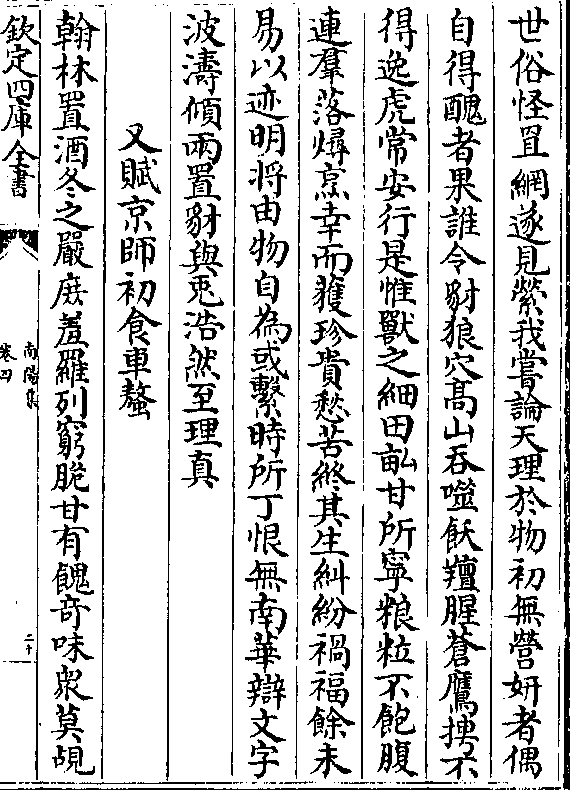 世俗怪罝網遂見縈我嘗論天理於物初無營妍者偶
自得醜者果誰令豺狼穴高山吞噬飫羶腥蒼鷹摶不
得逸虎常安行是惟獸之細田畝甘所寧粮粒不飽腹
連羣落燖烹幸而獲珍貴愁苦終其生糾紛禍福餘未
易以迹明將由物自為或繫時所丁恨無南華辯文字
波濤傾兩置豺與兎浩然至理真
又賦京師初食車螯
翰林置酒冬之嚴庶羞羅列窮脆甘有餽竒味衆莫覘
欽定四庫全書
南陽集
卷四
二十